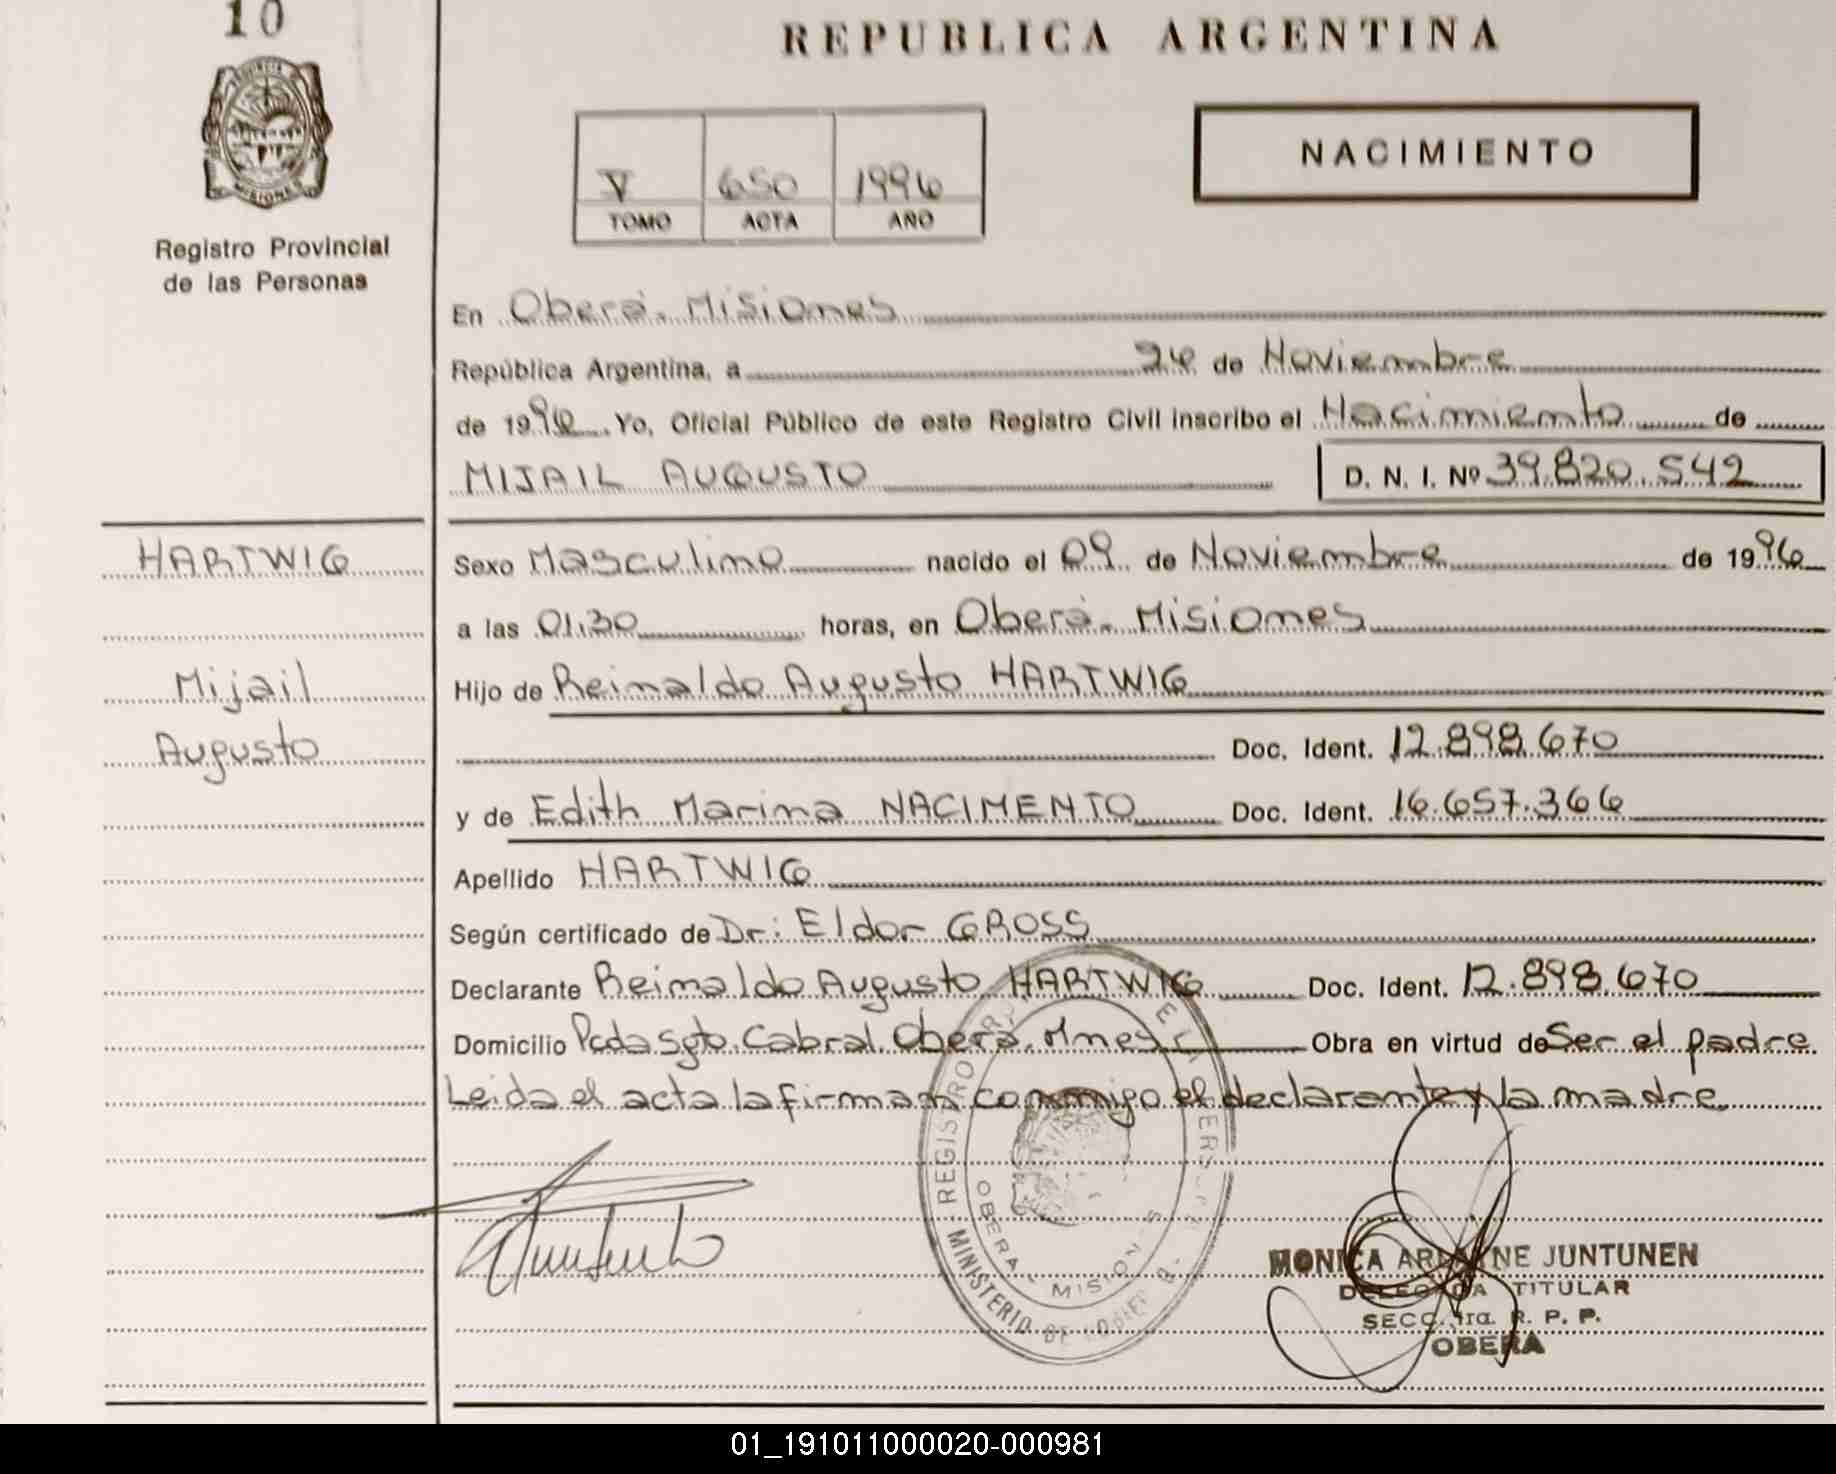 10
REPUBLICA ARGENTINA
MISIONES
Registro Provincial
de las Personas
V 650 1996
TOMO ACTA AÑO
NACIMIENTO
En Oberá. Misiones
República Argentina, a 26 de Noviembre
de 1996 Yo, Oficial Público de este Registro Civil inscribo el Nacimiento de
MIJAIL AUGUSTO D. N. I. Nº 39.820.542
HARTWIG
Mijail
Augusto
Sexo Masculino nacido el 09 de Noviembre de 1996
a las 01.30 horas, en Oberá. Misiones
Hijo de Reinaldo Augusto HARTWIG
Doc. Ident. 12.898.670
y de Edith Marina NACIMENTO Doc. Ident. 16.657.366
Apellido HARTWIG
Según certificado de Dr: Eldor GROSS
Declarante Reinaldo Augusto HARTWIG Doc. Ident. 12.898.670
Domicilio Pcda Sgto. Cabral. Oberá. Mnes. Obra en virtud de Ser el padre.
Leida el acta la firman conmigo el declarante y la madre
REGISTRO
OBERA - MISIONES
MINISTERIO DE GOBIERNO
MONICA JUNTUNEN
DELEGADA TITULAR
SECC. 1ra. R. P. P.
OBERA
01_191011000020-000981